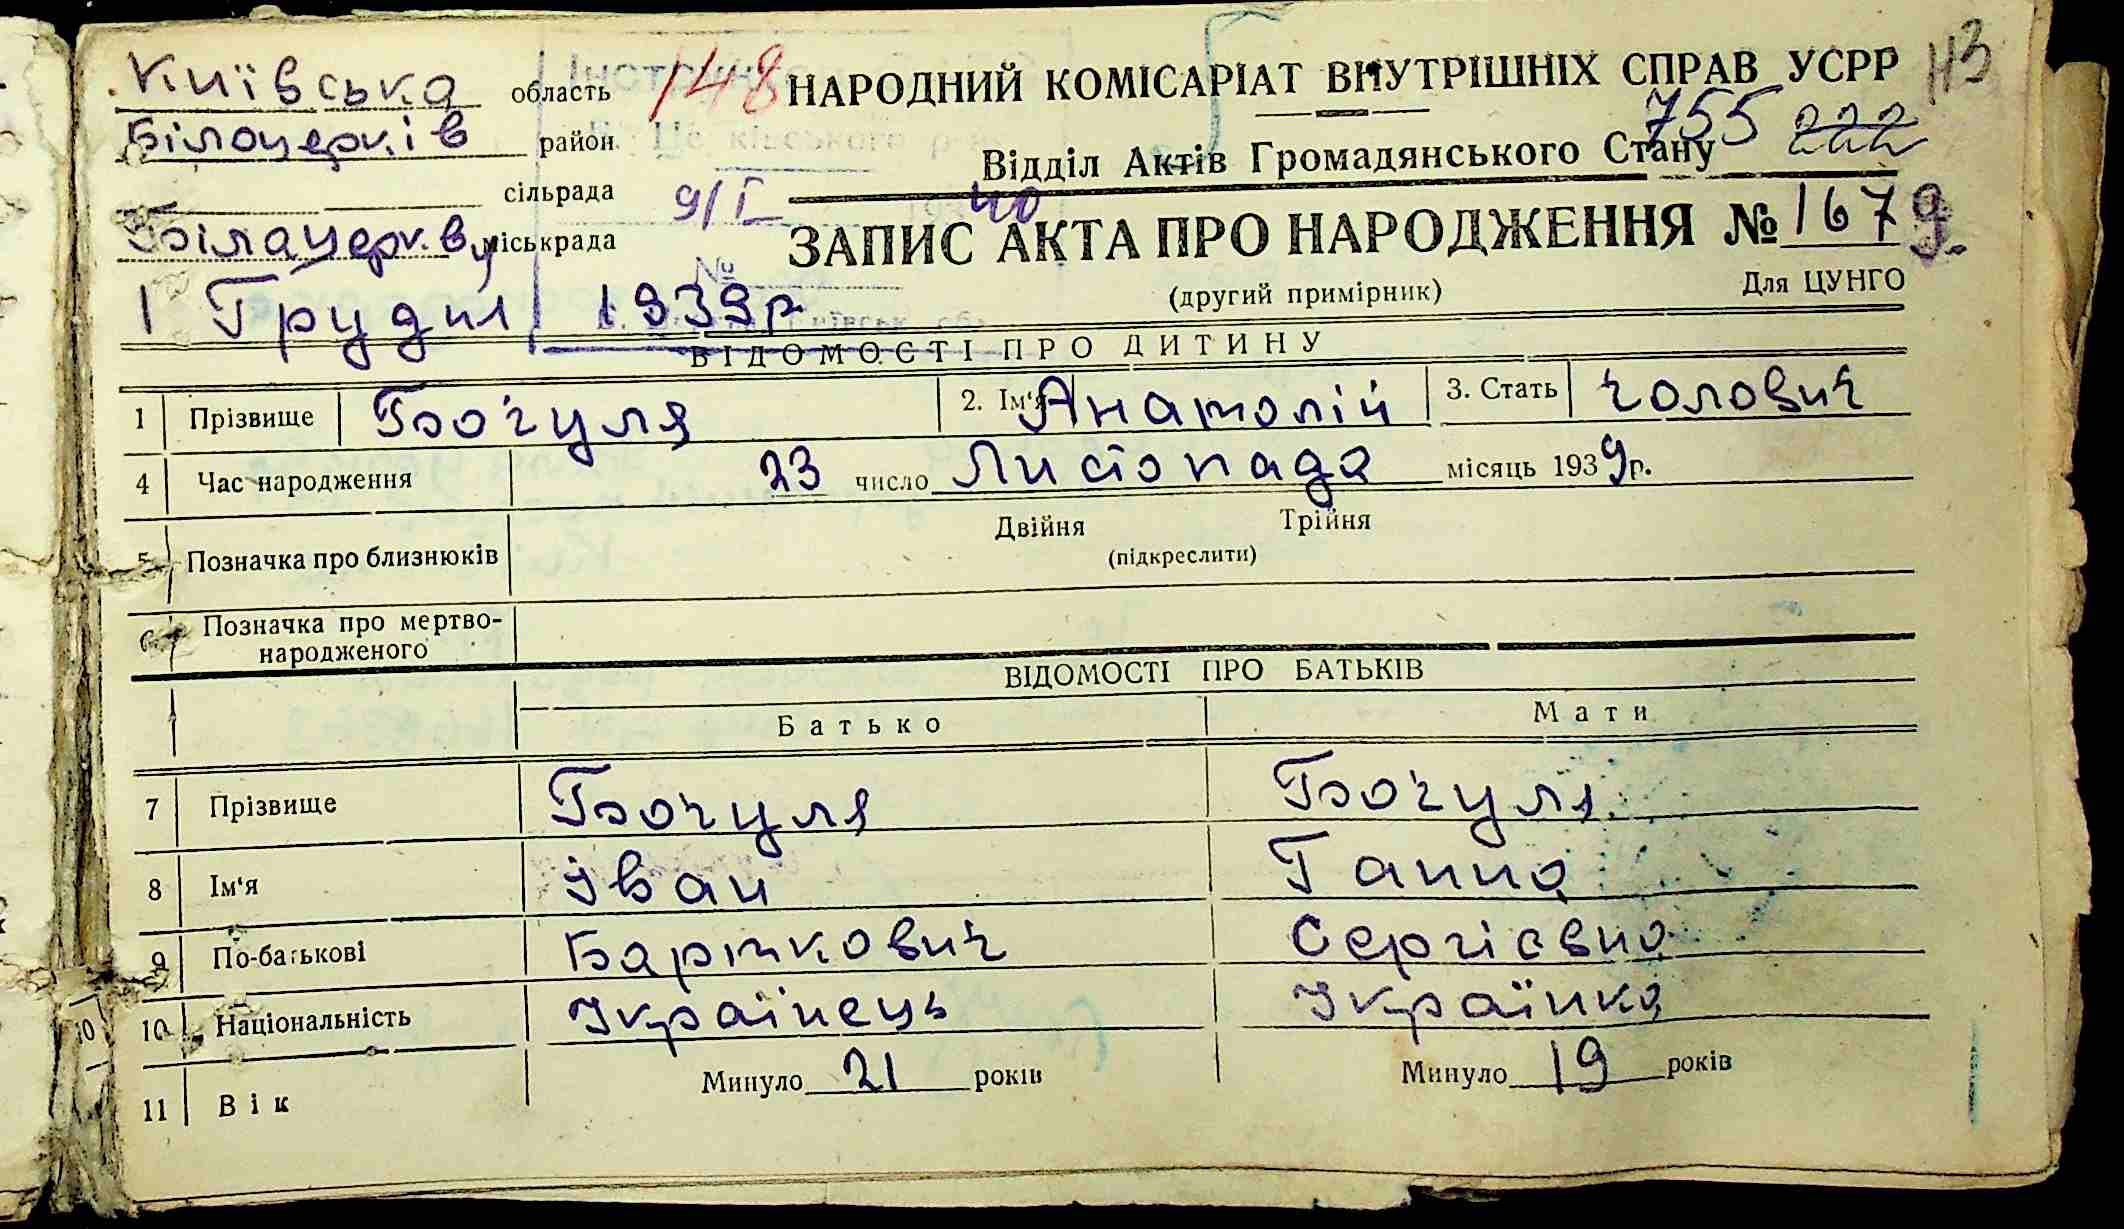 Київська область 148 НАРОДНИЙ КОМІСАРІАТ ВНУТРІШНІХ СПРАВ УСРР 113
Білоцерків район 755 222
Відділ Актів Громадянського Стану
сільрада 9/I 40
Білацерків міськрада ЗАПИС АКТА ПРО НАРОДЖЕННЯ № 1679
(другий примірник) Для ЦУНГО
1 Грудня 1939р
ВІДОМОСТІ ПРО ДИТИНУ
1 Прізвище Бочуля 2. Ім'я Анатолій 3. Стать чолович
4 Час народження 23 число Листопада місяць 1939р.
Двійня Трійня
5 Позначка про близнюків (підкреслити)
6 Позначка про мертво-
народженого
ВІДОМОСТІ ПРО БАТЬКІВ
Батько Мати
7 Прізвище Бочуля Бочуля
8 Ім'я Іван Ганна
9 По-батькові Барткович Сергієвна
10 10 Національність Українець Українка
11 Вік Минуло 21 років Минуло 19 років